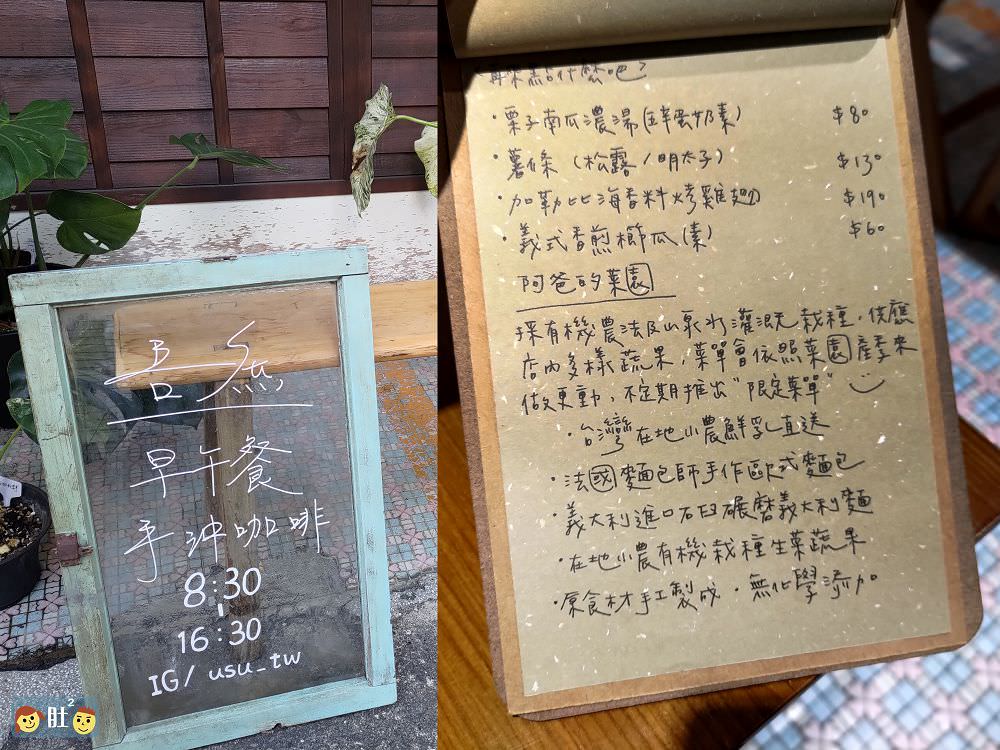 早午餐
手沖咖啡
8:30
16:30
IG/ usu_tw
旺²
再來點什麼吧?
·栗子南瓜濃湯(蛋奶素) $80
·薯條 (松露/明太子) $130
·加勒比海香料烤雞翅 $190
·義式香煎櫛瓜(素) $60
阿爸的菜園
採有機農法及山泉水灌溉栽種，供應
店內多樣蔬果，菜單會依照菜園產季來
做更動，不定期推出"限定菜單"
·台灣在地小農鮮乳直送
·法國麵包師手作歐式麵包
·義大利進口石臼碾磨義大利麵
·在地小農有機栽種生菜蔬果
·原食材手工製成·無化學添加